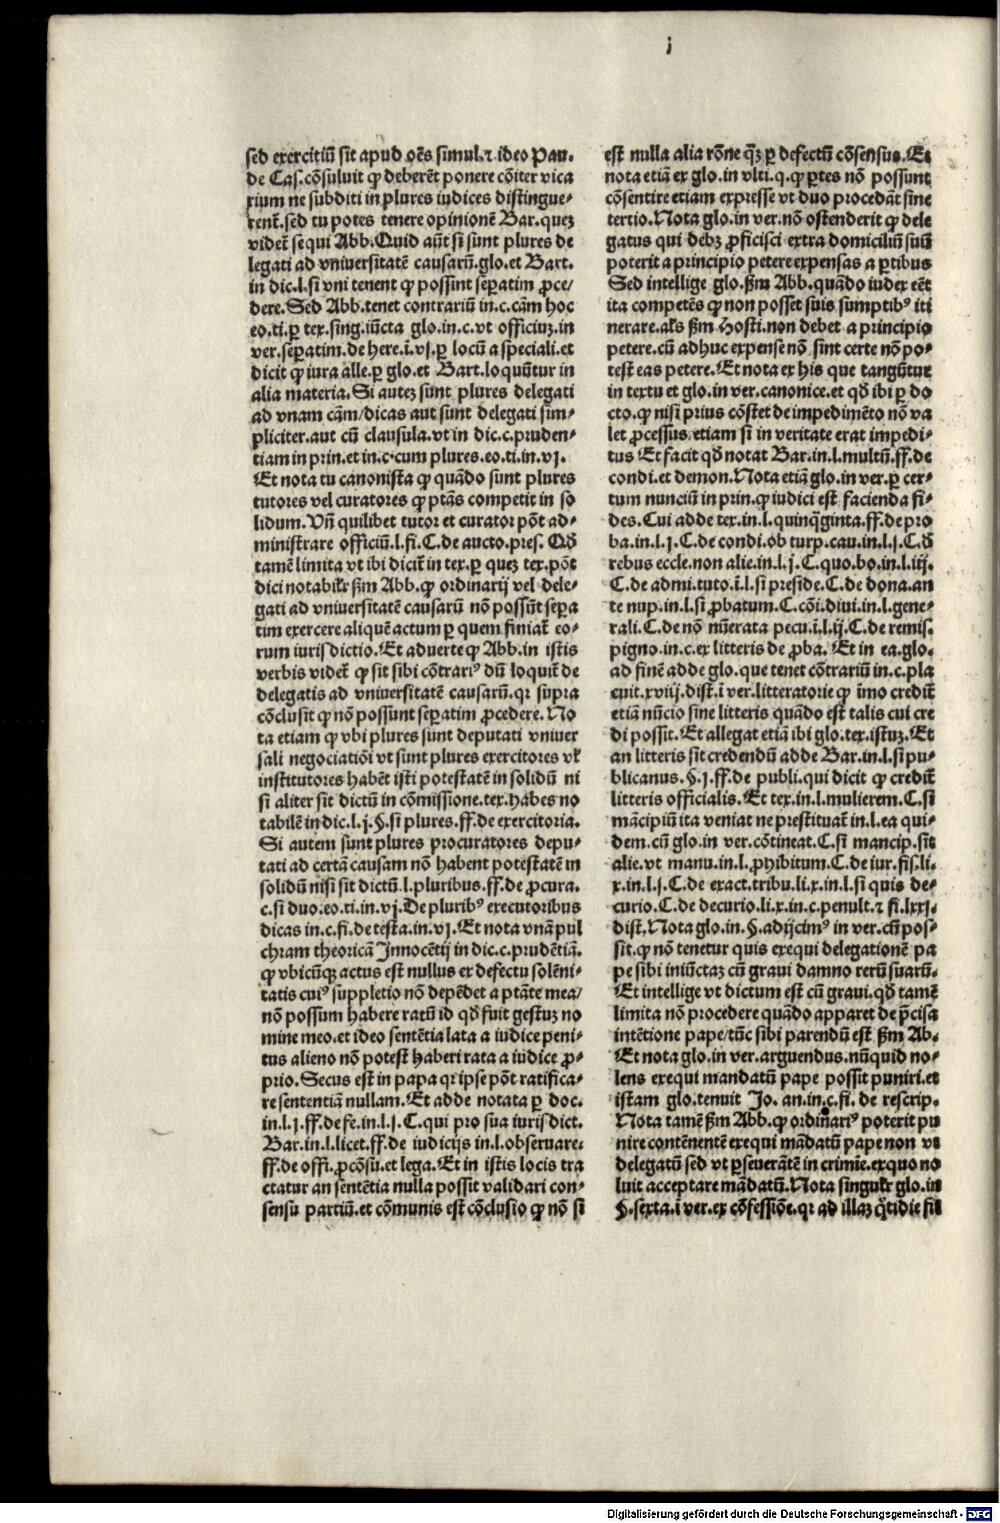 i
sed exercitiū sit apud oēs simul.⁊ ideo Pau.
de Cas.cōsuluit ꝙ deberēt ponere cōiter vica
rium ne subditi in plures iudices distingue⸗
rent̄.sed tu potes tenere opinionē Bar.quez
videt̄ sequi Abb.Quid aūt si sunt plures de
legati ad vniuersitatē causarū.glo.et Bart.
in dic.l.si vni tenent ꝙ possint seꝑatim ꝓce/
dere.Sed Abb.tenet contrariū in.c.cām hoc
eo.ti.ꝑ tex.sing.iūcta glo.in.c.vt officiuz.in
ver.seꝑatim.de here.i.vj.ꝑ locū a speciali.et
dicit ꝙ iura alle.ꝑ glo.et Bart.loquūtur in
alia materia.Si autez sunt plures delegati
ad vnam cām/dicas aut sunt delegati sim⸗
pliciter.aut cū clausula.vt in dic.c.pruden⸗
tiam in prin.et in.c.cum plures.eo.ti.in.vj.
Et nota tu canonista ꝙ quādo sunt plures
tutores vel curatores ꝙ ptās competit in so
lidum.Vñ quilibet tutor et curator pōt ad⸗
ministrare officiū.l.fi.C.de aucto.pres. Qđ
tamē limita vt ibi dicit̄ in tex.ꝑ quez tex.pōt
dici notabilr̄ ẜm Abb.ꝙ ordinarij vel dele⸗
gati ad vniuersitatē causarū nō possūt seꝑa
tim exercere aliquē actum ꝑ quem finiat̄ eo⸗
rum iurisdictio.Et aduerte ꝙ Abb.in istis
verbis videt̄ ꝙ sit sibi cōtrariꝰ dū loquit̄ de
delegatis ad vniuersitatē causarū.qr supra
cōclusit ꝙ nō possunt seꝑatim ꝓcedere.No
ta etiam ꝙ vbi plures sunt deputati vniuer
sali negociatiōi vt sunt plures exercitores vł
institutores habēt isti potestatē in solidū ni
si aliter sit dictū in cōmissione.tex.habes no
tabilē in dic.l.j.§.si plures.ff.de exercitoria.
Si autem sunt plures procuratores depu⸗
tati ad certā causam nō habent potestatē in
solidū nisi sit dictū.l.pluribus.ff.de ꝓcura.
c.si duo.eo.ti.in.vj.De pluribꝰ executoribus
dicas in.c.fi.de testa.in.vj.Et nota vnā pul
chram theoricā Innocētij in dic.c.prudētiā.
ꝙ vbicūqꝫ actus est nullus ex defectu solēni⸗
tatis cuiꝰ suppletio nō depēdet a ptāte mea/
nō possum habere ratū id qđ fuit gestuz no
mine meo.et ideo sentētia lata a iudice peni⸗
tus alieno nō potest haberi rata a iudice ꝓ⸗
prio.Secus est in papa qr ipse pōt ratifica⸗
re sententiā nullam.Et adde notata ꝑ doc.
in.l.j.ff.de fe.in.l.j.C.qui pro sua iurisdict.
Bar.in.l.licet.ff.de iudicijs in.l.obseruare.
ff.de offi.ꝓcōsu.et lega.Et in istis locis tra
ctatur an sentētia nulla possit validari con⸗
sensu partiū.et cōmunis est cōclusio ꝙ nō si
est nulla alia rōne q̄ꝫ ꝑ defectū cōsensus.Et
nota etiā ex glo.in vlti.q.ꝙ ꝑtes nō possunt
cōsentire etiam expresse vt duo procedāt sine
tertio.Nota glo.in ver.nō ostenderit ꝙ dele
gatus qui debꝫ ꝓficisci extra domiciliū suū
poterit a principio petere expensas a ꝑtibus
Sed intellige glo.ẜm Abb.quādo iudex eēt
ita competēs ꝙ non posset suis sumptibꝰ iti
nerare.als ẜm Hosti.non debet a principio
petere.cū adhuc expense nō sint certe nō po⸗
test eas petere.Et nota ex his que tangūtur
in textu et glo.in ver.canonice.et qđ ibi ꝑ do
cto.ꝙ nisi prius cōstet de impedimēto nō va
let ꝓcessus.etiam si in veritate erat impedi⸗
tus Et facit qđ notat Bar.in.l.multū.ff.de
condi.et demon.Nota etiā glo.in ver.ꝑ cer⸗
tum nunciū in prin.ꝙ iudici est facienda fi⸗
des.Cui adde tex.in.l.quinq̄ginta.ff.de pro
ba.in.l.j.C.de condi.ob turp.cau.in.l.j.C.đ
rebus eccle.non alie.in.l.j.C.quo.bo.in.l.iij.
C.de admi.tuto.i.l.si preside.C.de dona.an
te nup.in.l.si ꝓbatum.C.cōi.diui.in.l.gene⸗
rali.C.de nō nūerata pecu.i.l.ij.C.de remis.
pigno.in.c.ex litteris de ꝓba. Et in ea.glo.
ad finē adde glo.que tenet cōtrariū in.c.pla
cuit.xviij.dist.i ver.litteratorie ꝙ imo credit̄
etiā nūcio sine litteris quādo est talis cui cre
di possit.Et allegat etiā ibi glo.tex.istuz.Et
an litteris sit credendū adde Bar.in.l.si pu⸗
blicanus.§.j.ff.de publi.qui dicit ꝙ credit̄
litteris officialis.Et tex.in.l.mulierem.C.si
mācipiū ita veniat ne prestituat̄ in.l.ea qui⸗
dem.cū glo.in ver.cōtineat.C.si mancip.sit
alie.vt manu.in.l.ꝓhibitum.C.de iur.fis.li.
x.in.l.j.C.de exact.tribu.li.x.in.l.si quis de⸗
curio.C.de decurio.li.x.in.c.penult.⁊ fi.lxxj.
dist.Nota glo.in.§.adijcimꝰ in ver.cū pos⸗
sit.ꝙ nō tenetur quis exequi delegationē pa
pe sibi iniūctaz cū graui damno rerū suarū.
Et intellige vt dictum est cū graui.qđ tamē
limita nō procedere quādo apparet de p̄cisa
intētione pape/tūc sibi parendū est ẜm Ab.
Et nota glo.in ver.arguendus.nūquid no⸗
lens exequi mandatū pape possit puniri.et
istam glo.tenuit Jo. an.in.c.fi. de rescrip.
Nota tamē ẜm Abb.ꝙ ordinariꝰ poterit pu
nire contēnentē exequi mādatū pape non vt
delegatū sed vt ꝑseuerātē in crimīe.ex quo no
luit acceptare mādatū.Nota singulr̄ glo.in
§.sexta.i ver.ex cōfessiōe.qr ad illaꝫ q̄tidie fit
Digitalisierung gefördert durch die Deutsche Forschungsgemeinschaft - DFG